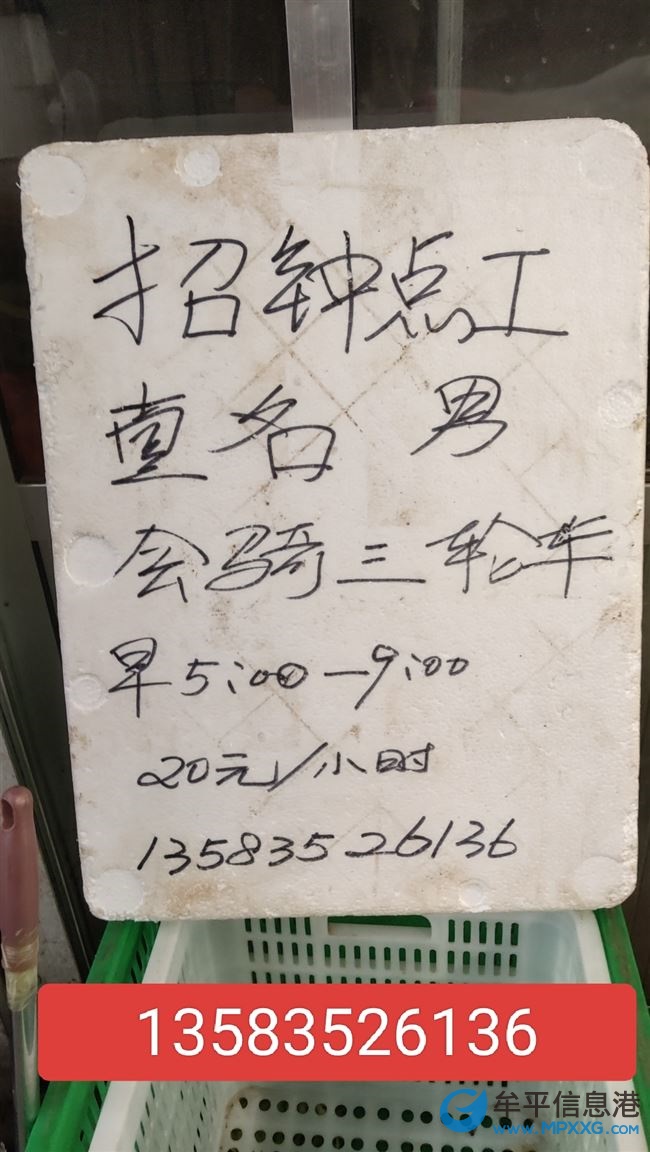 招钟点工
壹名 男
会骑三轮车
早5:00—9:00
20元/小时
13583526136
13583526136
牟平信息港
WWW.MPXXG.COM